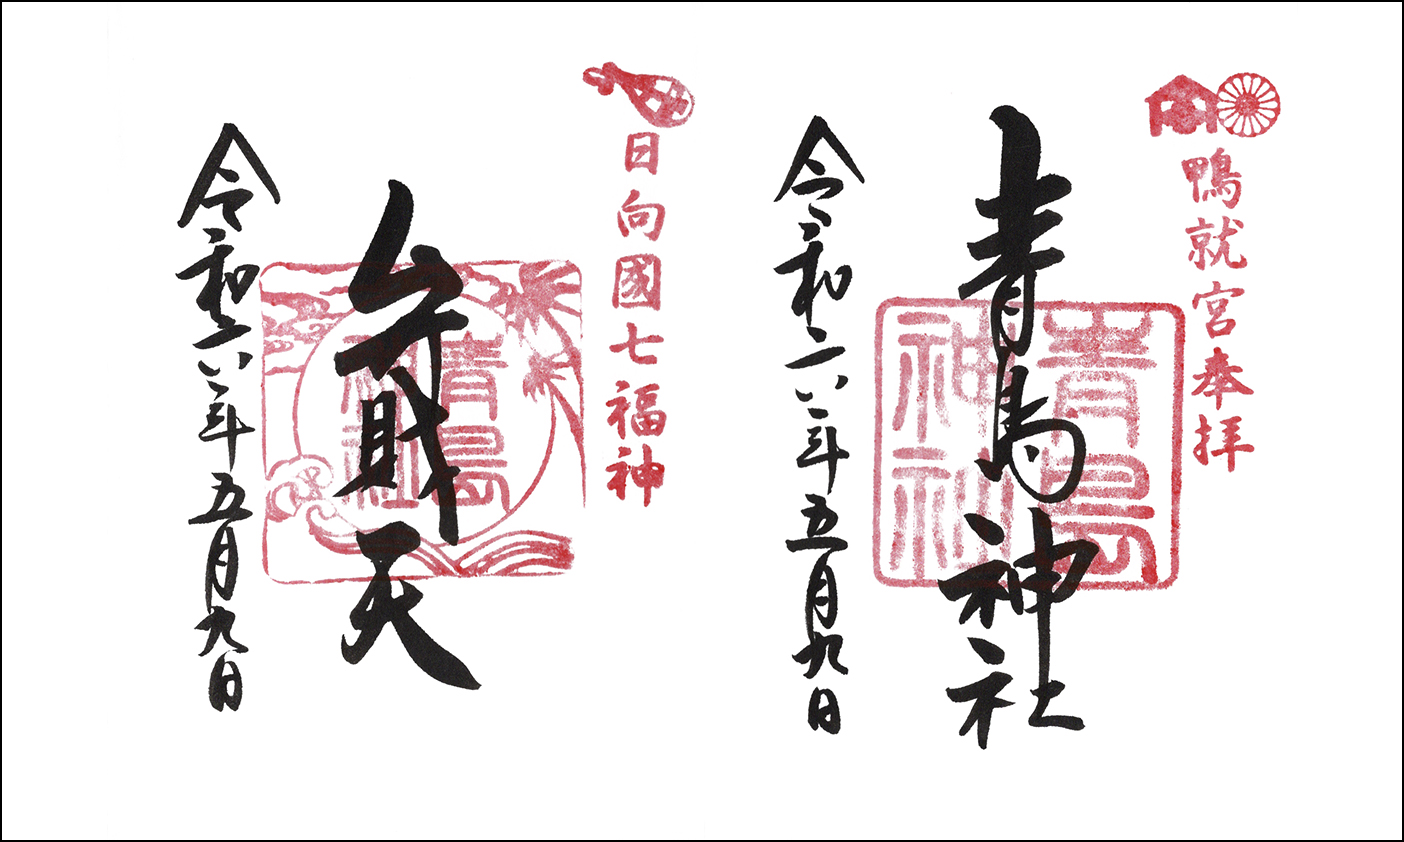 鴨就宮奉拝
青島神社
青島神社
令和六年五月九日
日向國七福神
弁財天
青島神社
令和六年五月九日